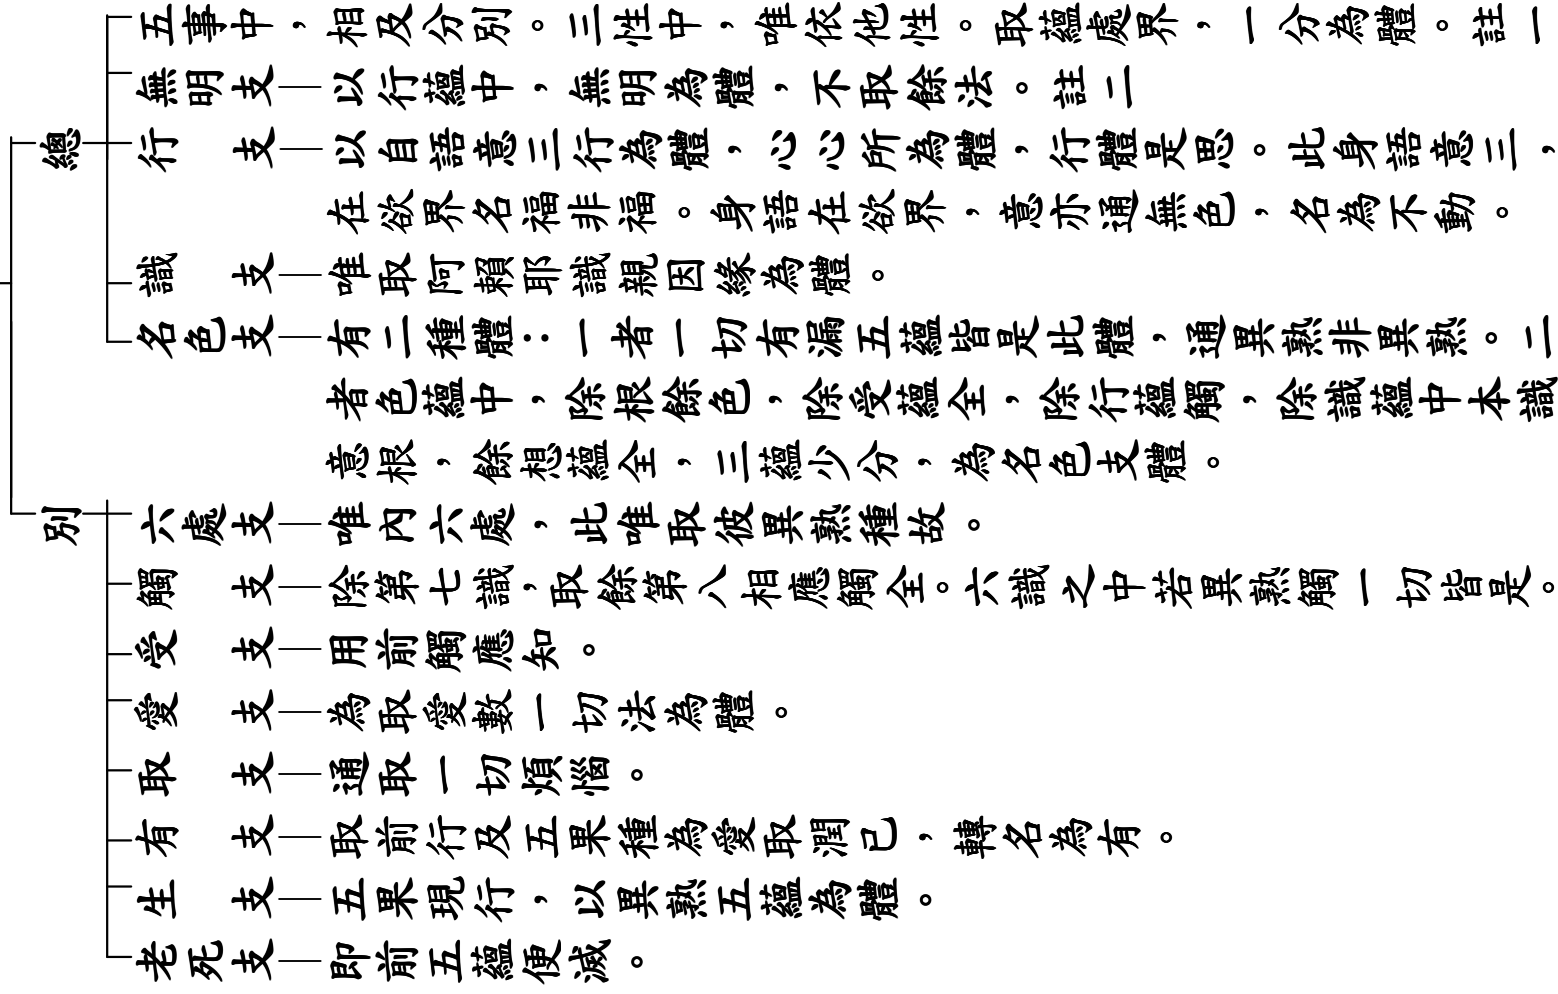 總
五事中，相及分別。三性中，唯依他性。取蘊處界，一分為體。註一
無明支—以行蘊中，無明為體，不取餘法。註二
行　支—以自語意三行為體，心心所為體，行體是思。此身語意三，
在欲界名福非福。身語在欲界，意亦通無色，名為不動。
識　支—唯取阿賴耶識親因緣為體。
名色支—有二種體：一者一切有漏五蘊皆是此體，通異熟非異熟。二
者色蘊中，除根餘色，除受蘊全，除行蘊觸，除識蘊中本識
意根，餘想蘊全，三蘊少分，為名色支體。
別
六處支—唯內六處，此唯取彼異熟種故。
觸　支—除第七識，取餘第八相應觸全。六識之中若異熟觸一切皆是。
受　支—用前觸應知。
愛　支—為取愛數一切法為體。
取　支—通取一切煩惱。
有　支—取前行及五果種為愛取潤已，轉名為有。
生　支—五果現行，以異熟五蘊為體。
老死支—即前五蘊便滅。